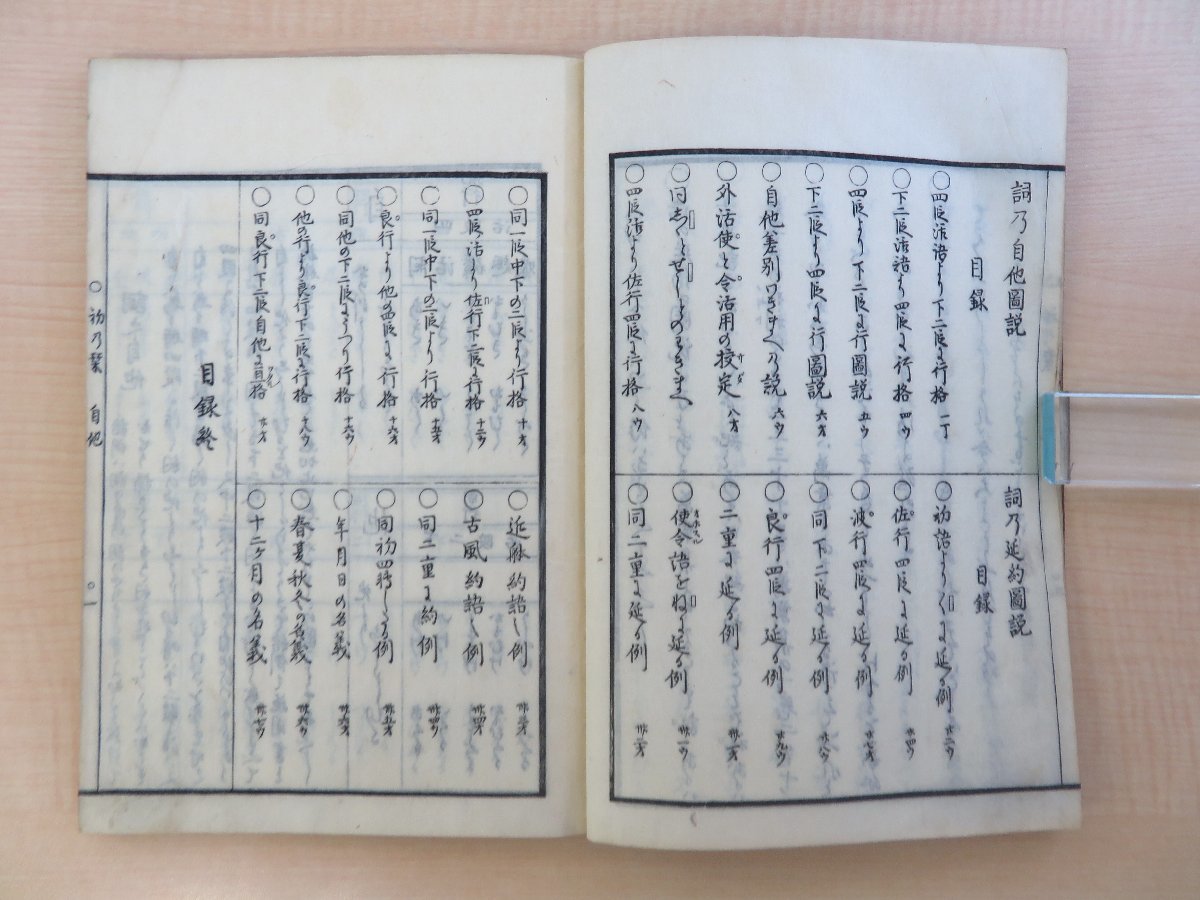 詞乃自他圖説
目録
○四段活語より下二段に行格 一丁
○下二段活語より四段に行格 四ウ
○四段より下二段に行圖説 五ウ
○下二段より四段に行圖説 六オ
○自他差別わきまへの説 六ウ
○外活使と令活用の授定 八オ
○四段活より佐行四段に行格 八ウ
詞乃延約圖説
目録
○初語より に延る例
○佐行四段に延る例 廿四ウ
○波行四段に延る例 廿七オ
○同下二段に延る例 廿八ウ
○良行四段に延る例 廿九ウ
○二重に延る例 卅一オ
○使令語を に延る例 卅一ウ
○同二重に延る例 卅二オ
○同一段中下の二段より行格 十オ
○四段活より佐行下二段に行格 十二ウ
○同一段中下の二段より行格 十五オ
○良行より他の四段に行格 十五オ
○同他の下二段にうつり行格 十六ウ
○他の行より良行下二段に行格 十八ウ
○同良行下二段自他に亘格 廿オ
○近躰約語の例
○古風約語の例 卅四オ
○同二重に約例 卅四ウ
○同初四 例 卅五オ
○年月日の名義 卅六オ
○春夏秋冬の名義 卅六ウ
○十二ヶ月の名義 卅七ウ
目録終
○初乃栞 自他 ○一